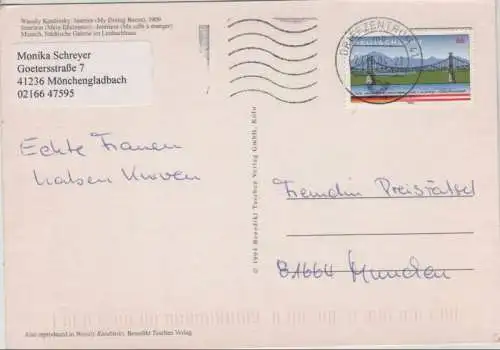 Wassily Kandinsky: Interior (My Dining Room), 1909
Interieur (Mein Eßzimmer) · Intérieur (Ma salle à manger)
Munich, Städtische Galerie im Lenbachhaus
Monika Schreyer
Goetersstraße 7
41236 Mönchengladbach
02166 47595
BRIEFZENTRUM 41
Echte Frauen
haben Kurven
© 1994 Benedikt Taschen Verlag GmbH, Köln
Freundin Preisrätsel
81664 München
Also reproduced in Wassily Kandinsky, Benedikt Taschen Verlag